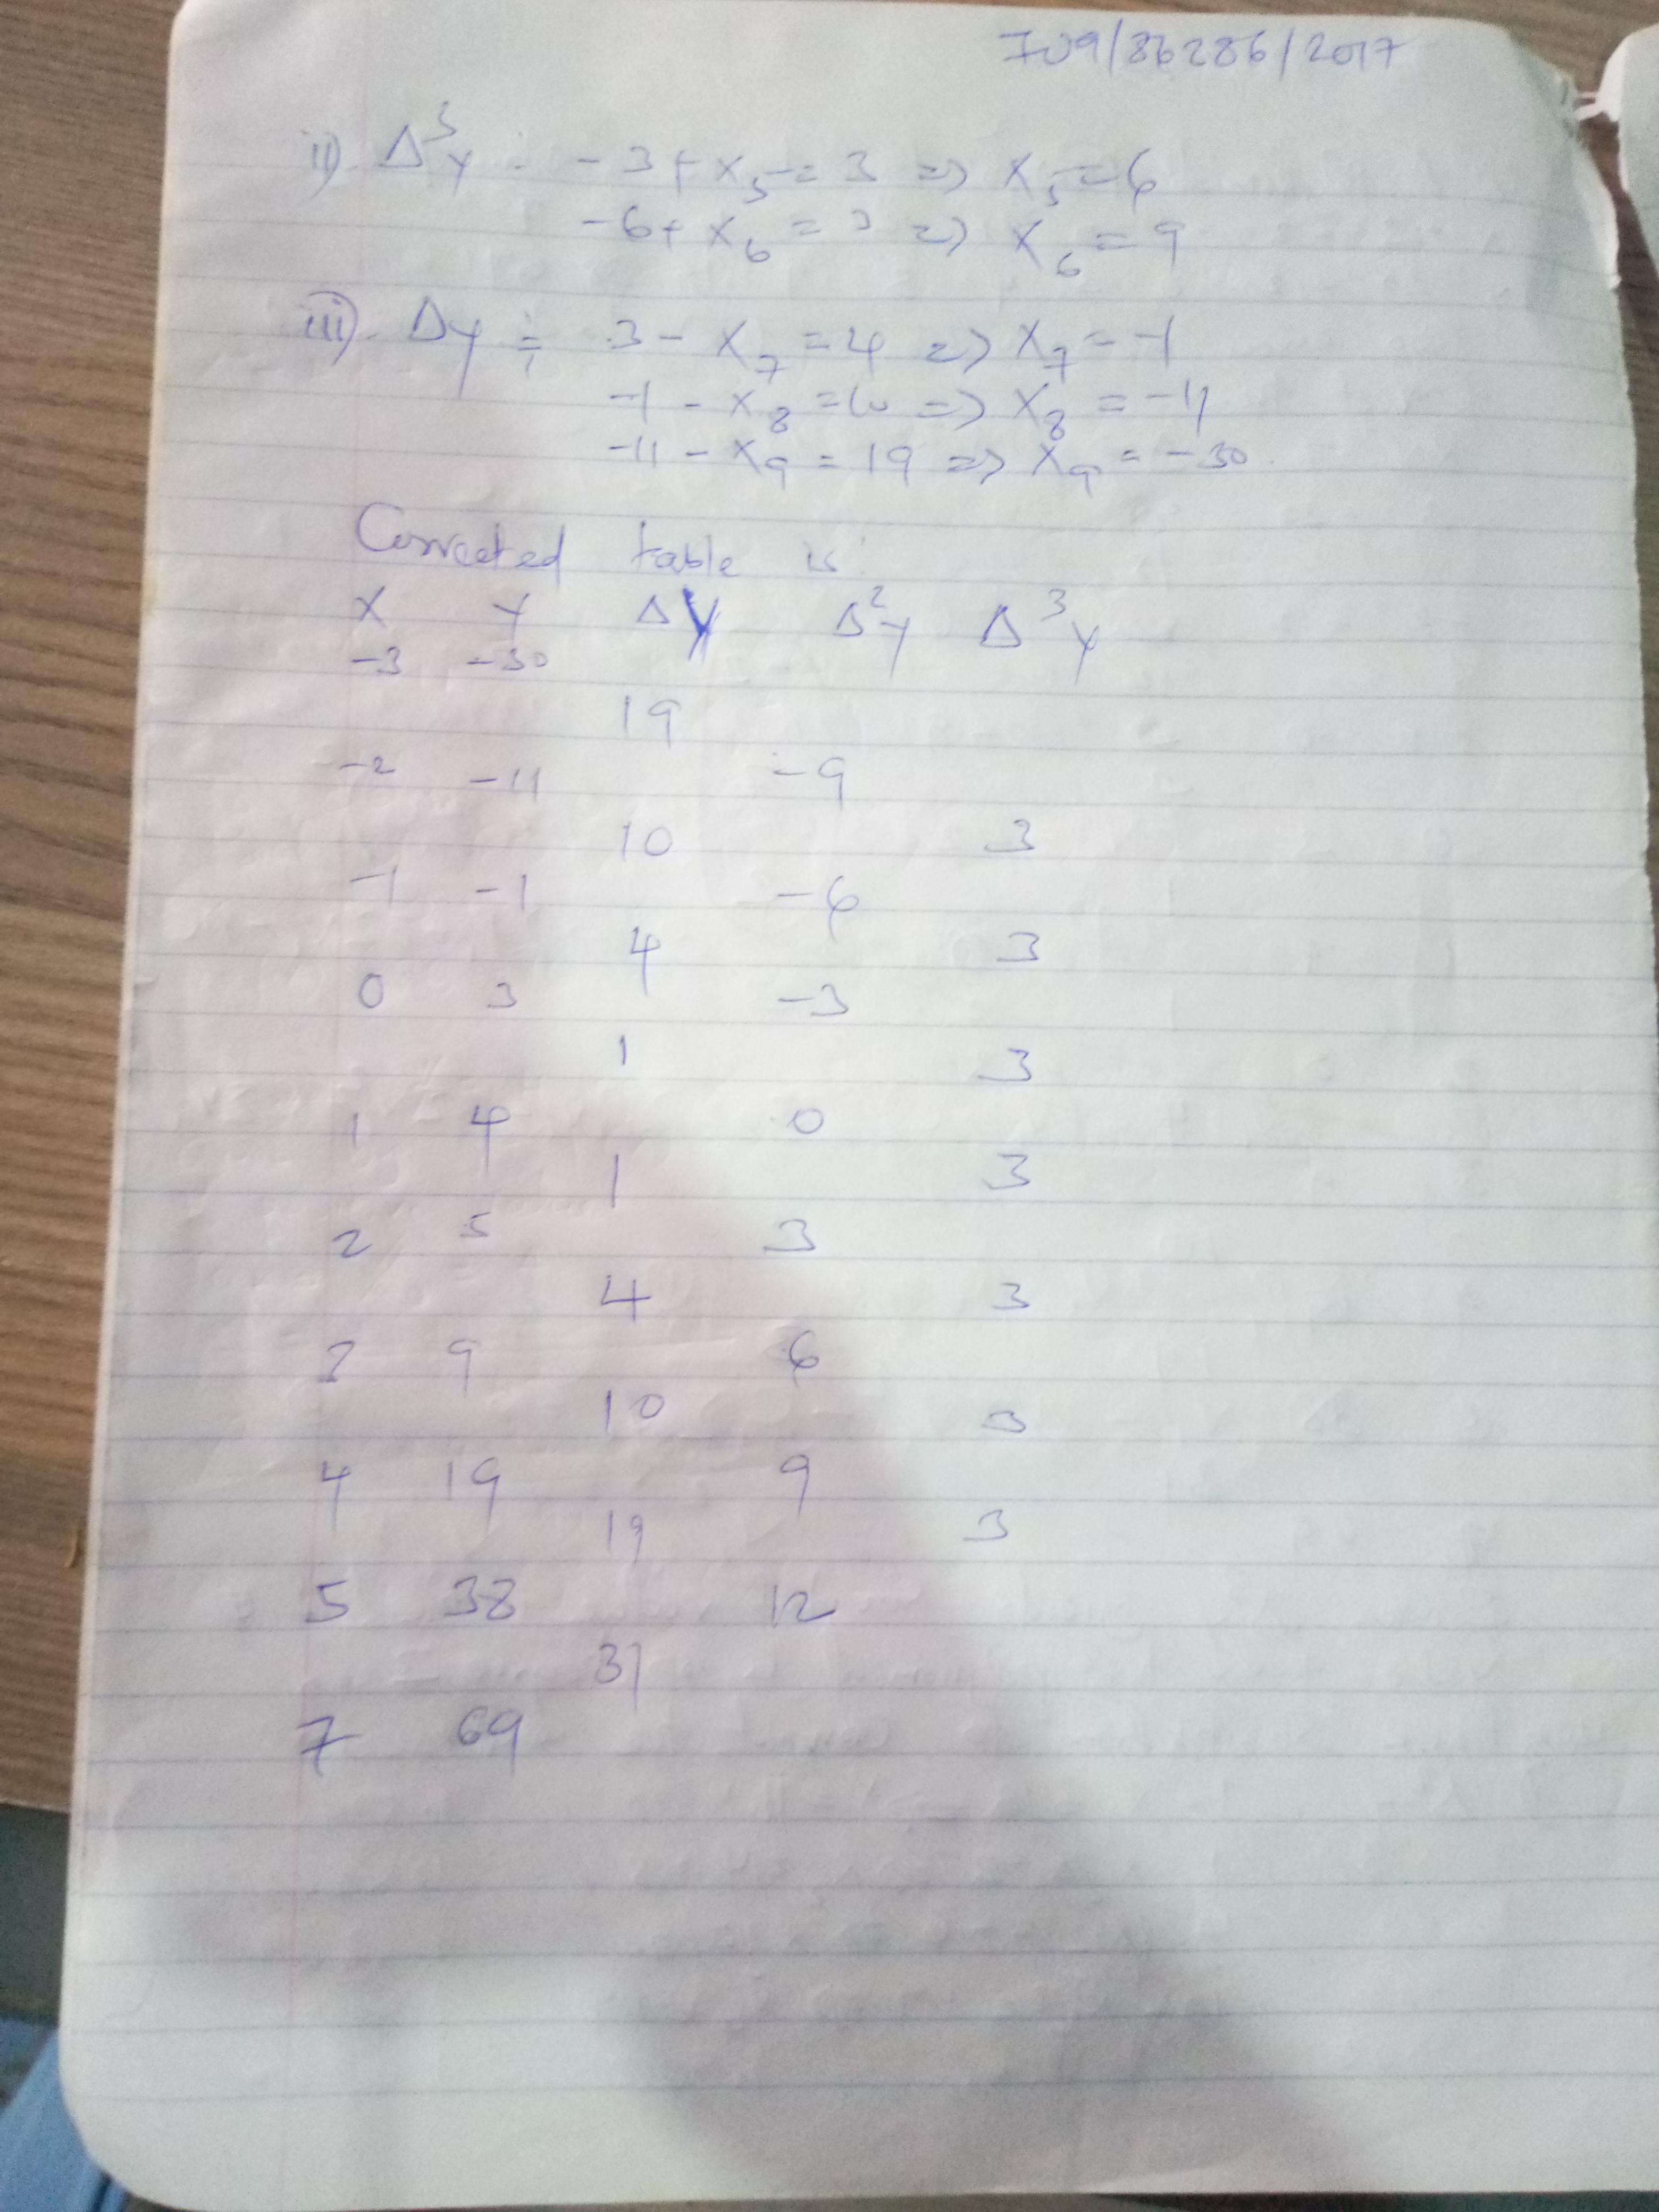 J09/86286/2017
ii). Δ³y . -3+x₅ = 3 => x₅ = 6
-6+x₆ = 3 => x₆ = 9
iii). Δy = 3 - x₇ = 4 => x₇ = -1
-1 - x₈ = 10 => x₈ = -11
-11 - x₉ = 19 => x₉ = -30.
Corrected table is:
X Y ΔY Δ²y Δ³y
-3 -30
19
-2 -11 -9
10 3
-1 -1 -6
4 3
0 3 -3
1 3
1 4 0
1 3
2 5 3
4 3
3 9 6
10 3
4 19 9
19 3
5 38 12
31
7 69